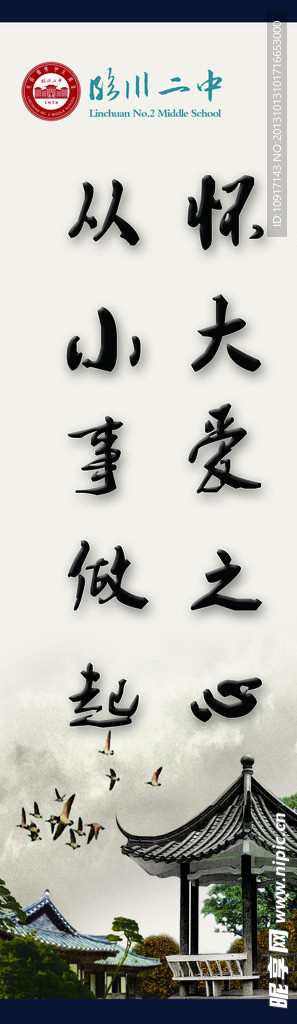 临川二中
Linchuan No.2 Middle School
怀大爱之心
从小事做起
ID:10917143 NO:20131013101716653000
昵享网 www.nipic.cn